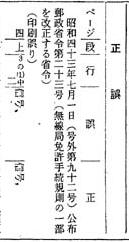 正誤
ページ 段 行 誤 正
昭和四十三年七月一日(号外第九十二号)公布
郵政省令第二十三号(無線局免許手続規則の一部
を改正する省令)
(印刷誤り)
四 上